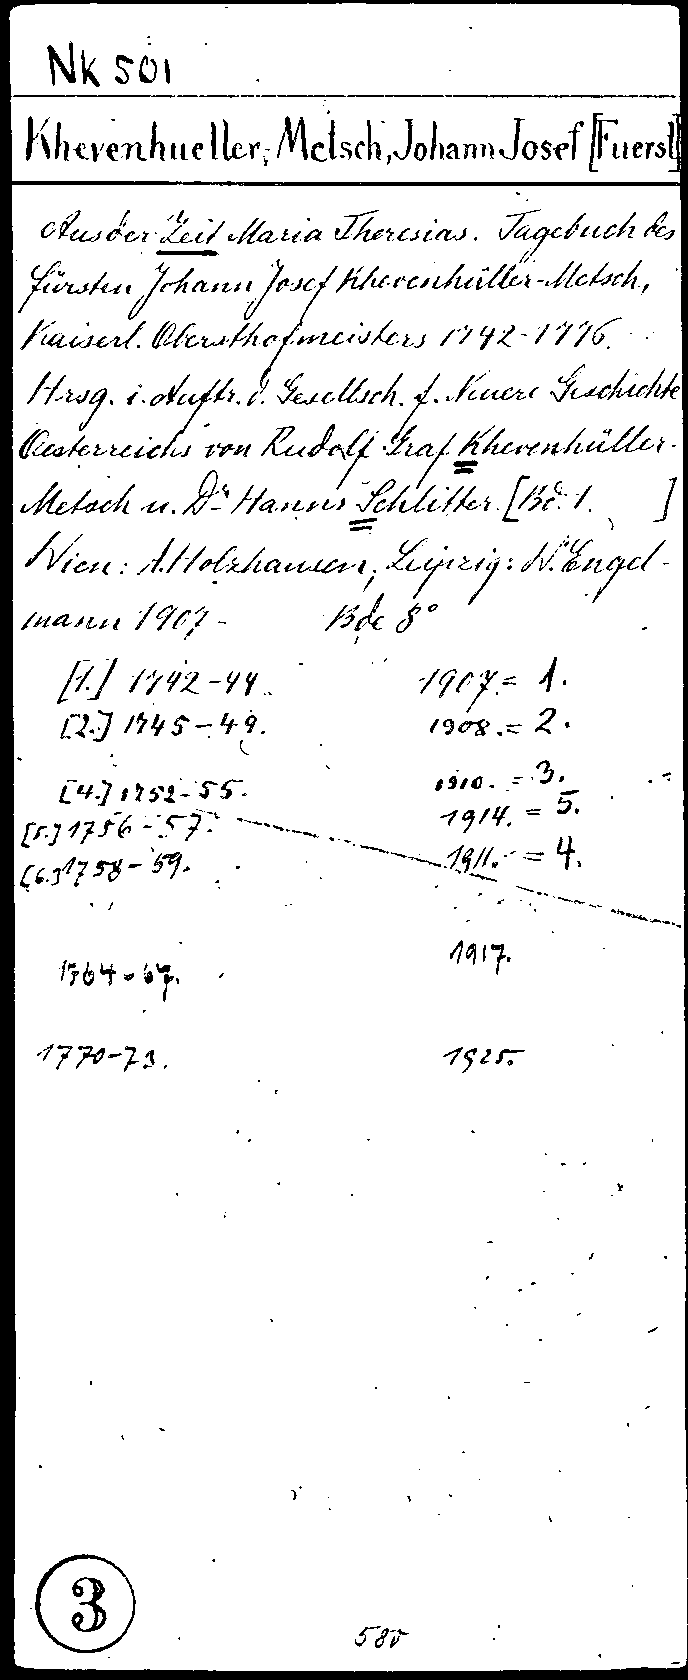 NK 501
Khevenhueller-Metsch, Johann Josef [Fuerst]
Aus der Zeit Maria Theresias. Tagebuch des
Fürsten Johann Josef Khevenhüller-Metsch,
Kaiserl. Obersthofmeisters 1742-1776.
Hrsg. i. Auftr. d. Gesellsch. f. Neuere Geschichte
Oesterreichs von Rudolf Graf Khevenhüller-
Metsch u. Dr Hanns Schlitter. [Bd. 1. ]
Wien: A. Holzhausen, Leipzig: W. Engel-
mann 1907- Bde 8°
[1.] 1742-44. 1907. = 1.
[2.] 1745-49. 1908. = 2.
[4.] 1752-55. 1910. = 3.
[5.] 1756-57. 1914. = 5.
[6.] 1758-59. 1911. = 4.
1764-67. 1917.
1770-73. 1925.
3